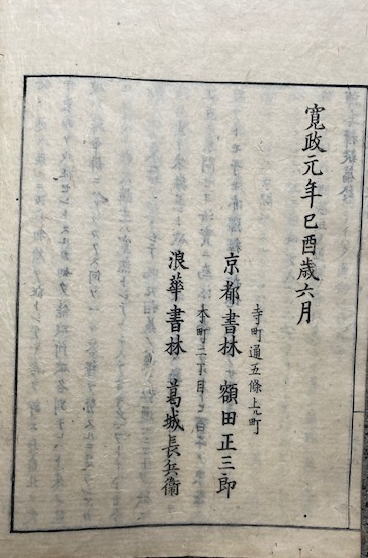 寛政元年己酉歳六月
寺町通五條上ル町
京都書林 額田正三郎
本町二丁目
浪華書林 葛城長兵衛